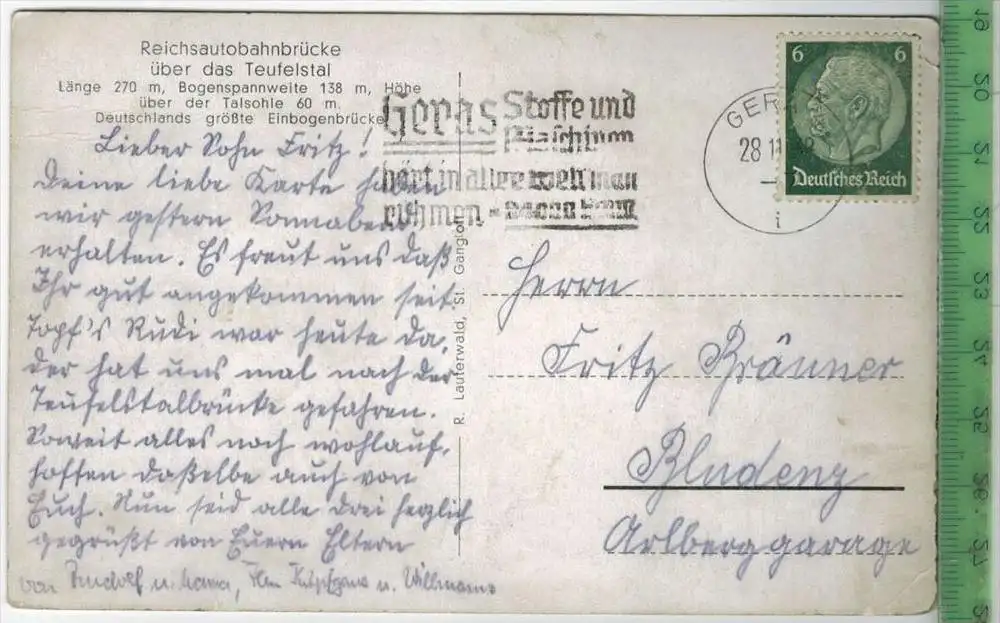 Reichsautobahnbrücke
über das Teufelstal
Länge 270 m, Bogenspannweite 138 m, Höhe
über der Talsohle 60 m.
Deutschlands größte Einbogenbrücke
Lieber Sohn Fritz!
Deine liebe Karte haben
wir gestern Sonnabend
erhalten. Es freut uns daß
Ihr gut angekommen seit.
Topf's Rudi war heute da,
der hat uns mal nach der
Teufelstalbrücke gefahren.
Soweit alles noch wohlauf,
hoffen daßelbe auch von
Euch. Nun seid alle drei herzlich
gegrüßt von Euern Eltern
von Rudolf u.
u. Willmanns
R. Lauterwald, St. Gangloff
Geras Stoffe und
Maschinen
hört in aller Welt man
rühmen -
GERA
28 11
i
6 6
Deutsches Reich
Herrn
Fritz Bränner
Bludenz
Arlberggarage